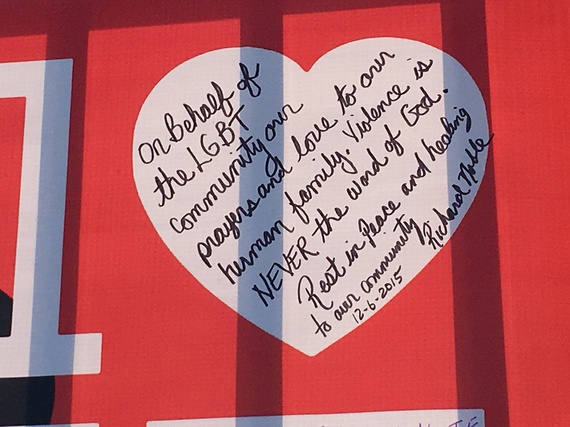 On Behalf of
the LGBT
community our
prayers and love to our
human family. Violence is
NEVER the word of God.
Rest in Peace and healing
to our community
Richard Noble
12-6-2015